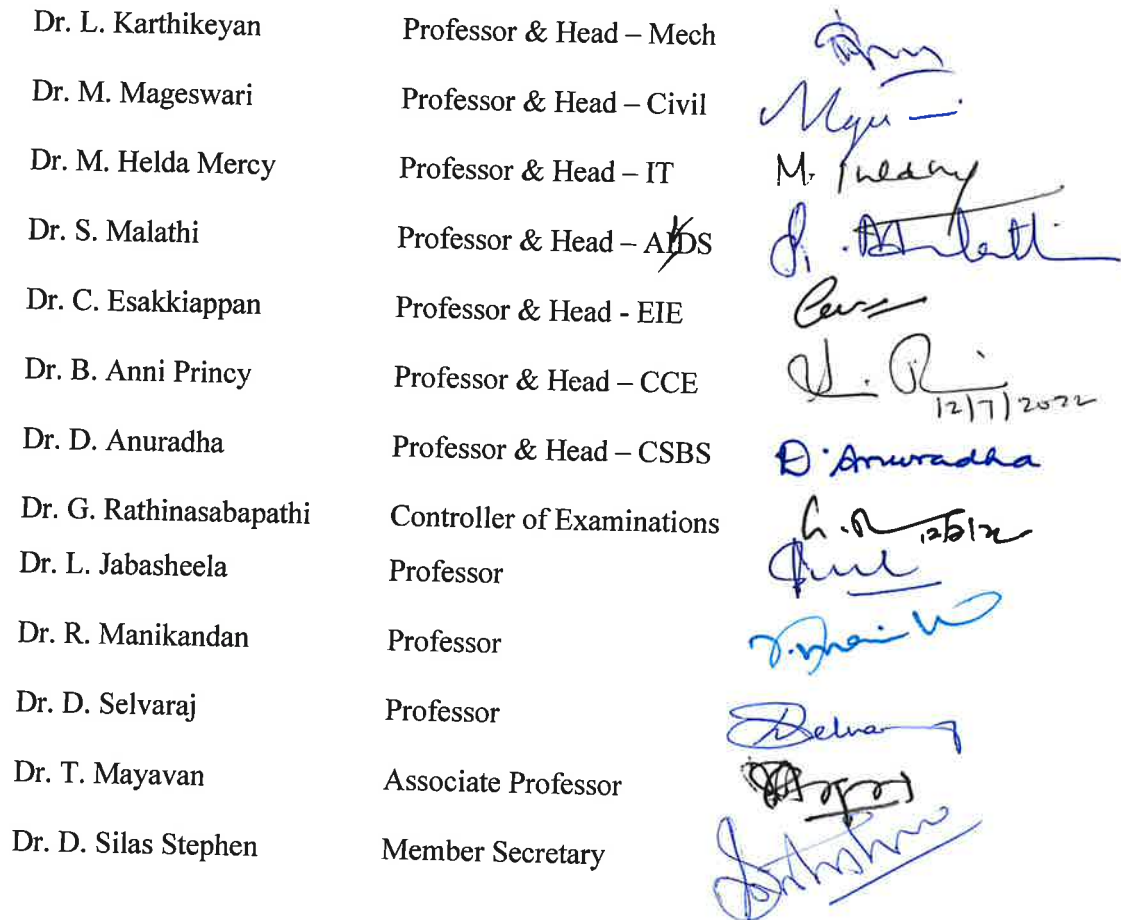 Dr. L. Karthikeyan Professor & Head – Mech
Dr. M. Mageswari Professor & Head – Civil
Dr. M. Helda Mercy Professor & Head – IT M.
Dr. S. Malathi Professor & Head – AIDS
Dr. C. Esakkiappan Professor & Head - EIE
Dr. B. Anni Princy Professor & Head – CCE 12/7/2022
Dr. D. Anuradha Professor & Head – CSBS D. Anuradha
Dr. G. Rathinasabapathi Controller of Examinations
Dr. L. Jabasheela Professor
Dr. R. Manikandan Professor
Dr. D. Selvaraj Professor
Dr. T. Mayavan Associate Professor
Dr. D. Silas Stephen Member Secretary